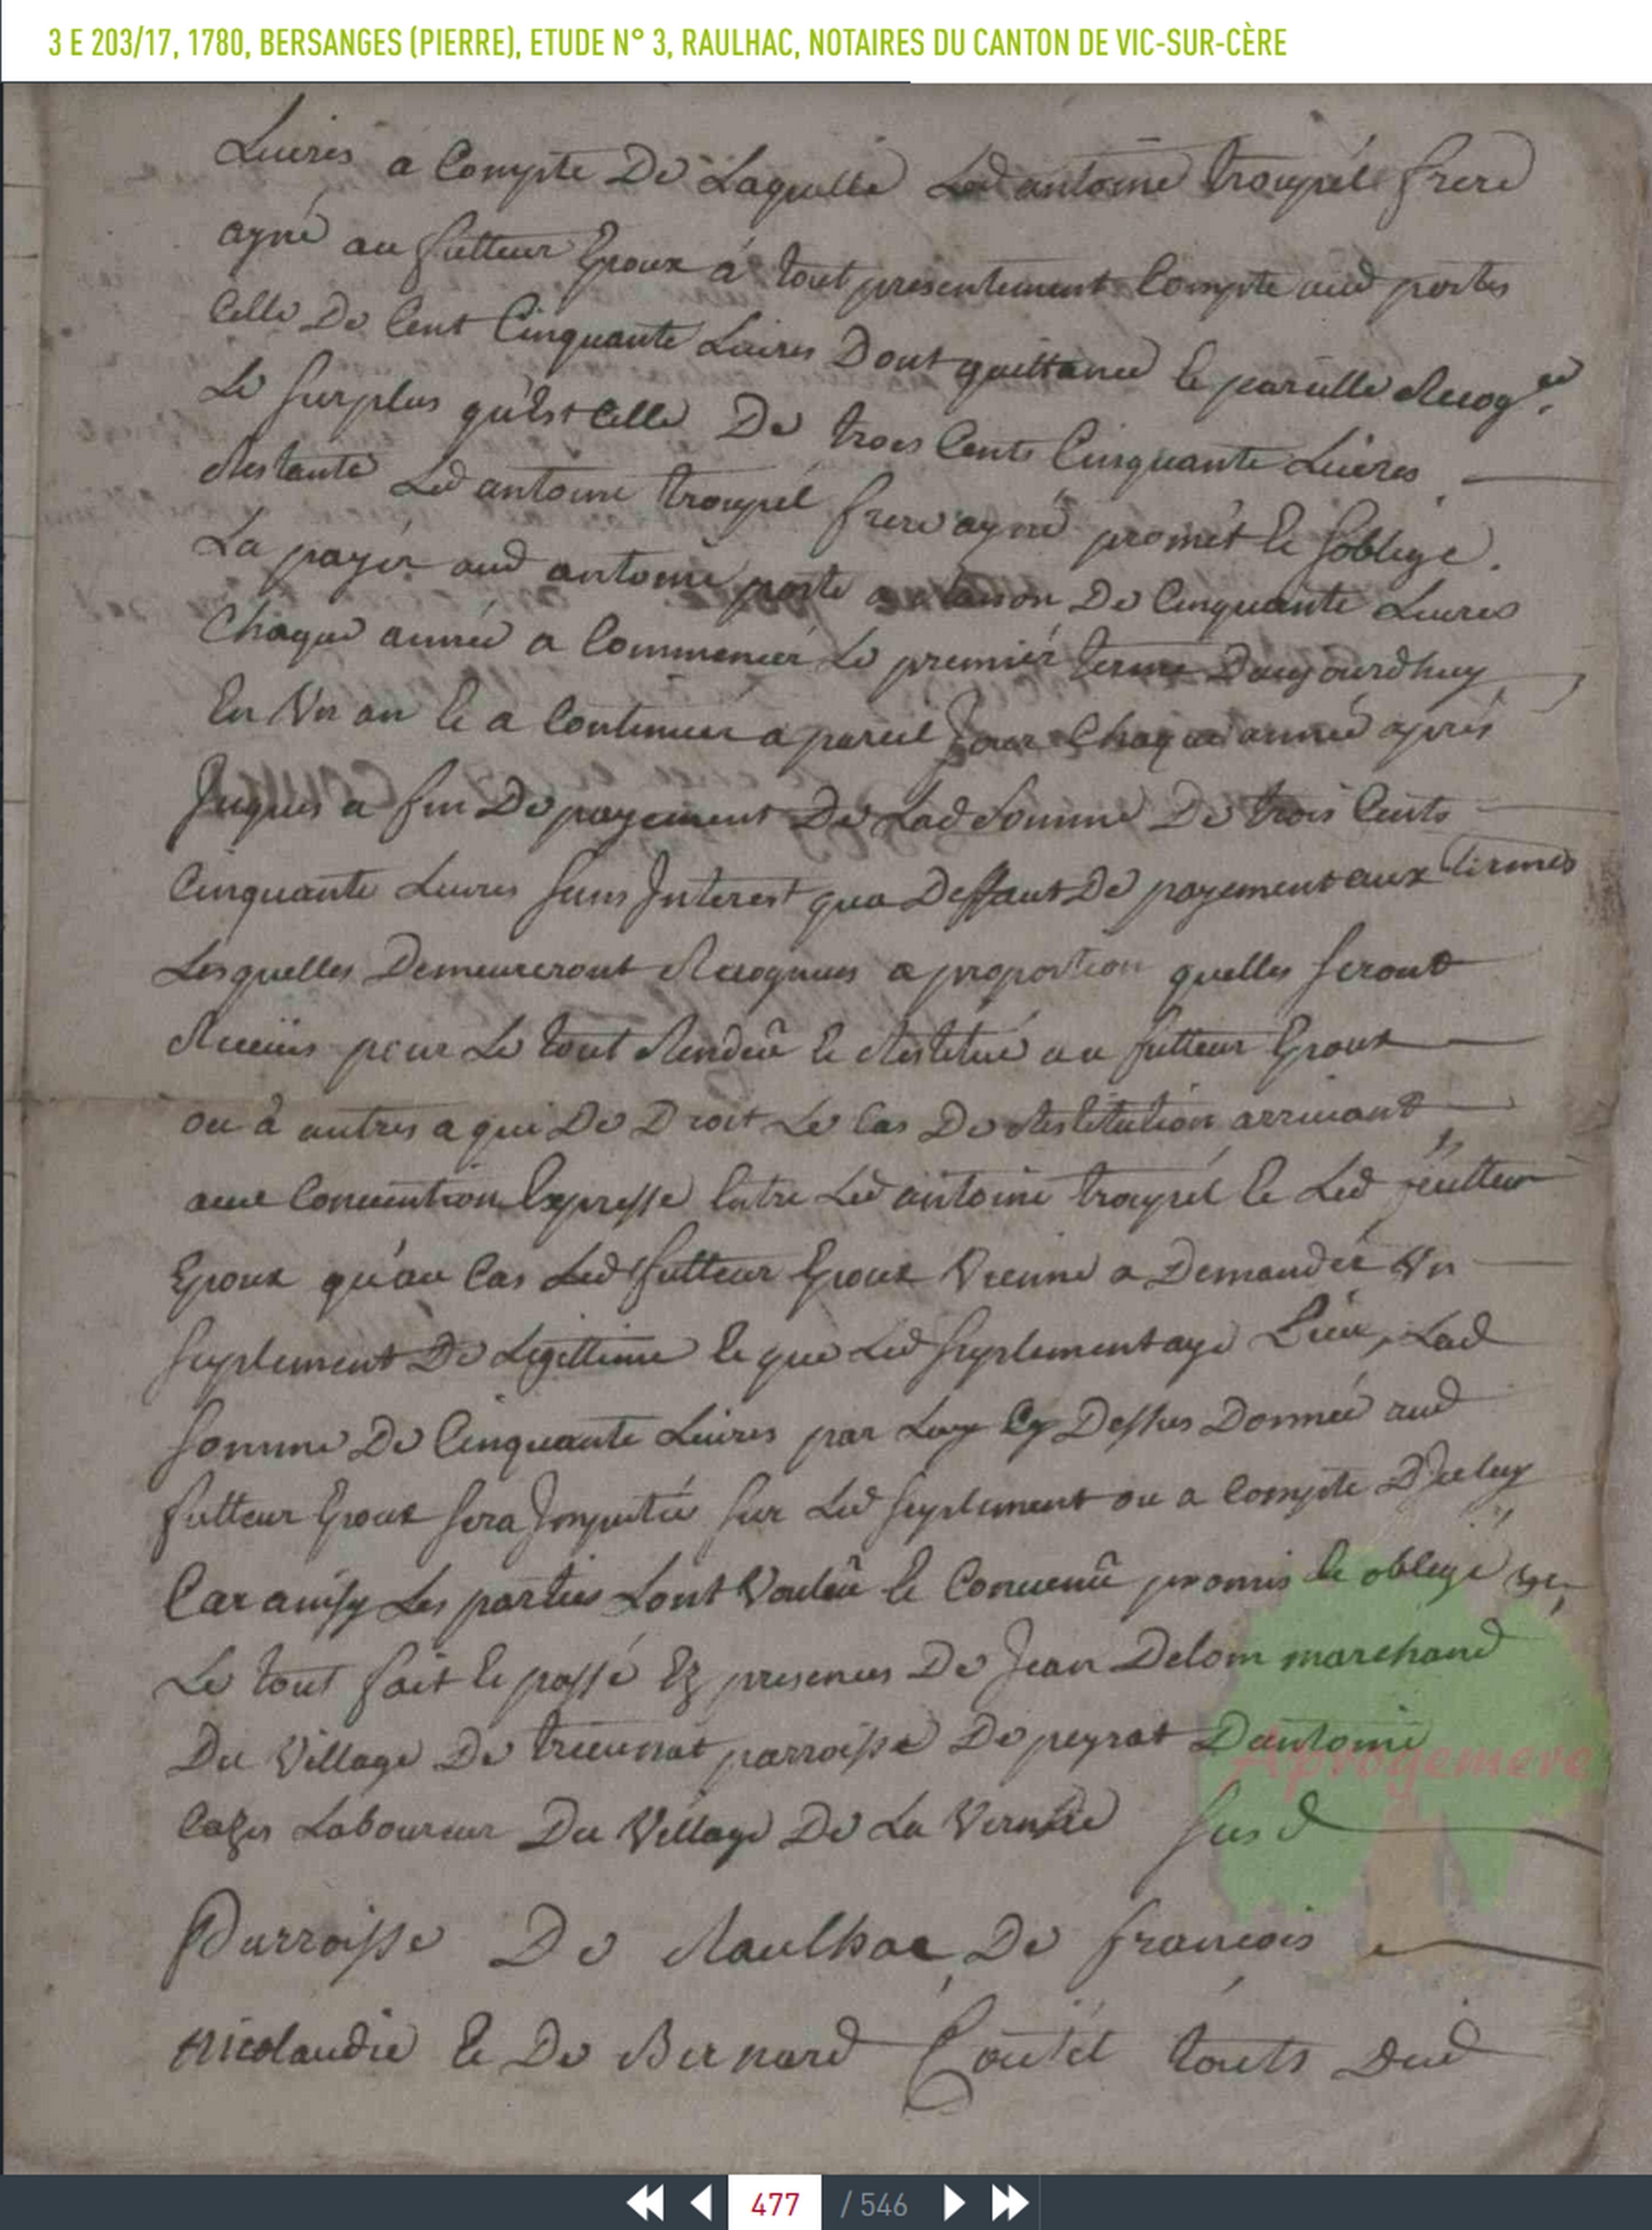 3 E 203/17, 1780, BERSANGES (PIERRE), ETUDE N° 3, RAULHAC, NOTAIRES DU CANTON DE VIC-SUR-CÈRE
Livres a Compte De Laquelle Led antoine troupel frere
ayné au futteur Epoux á tout presentement Compte aud portes
Celle De Cent Cinquante Livres Dont quittance Et pareille Recog.ce
Le surplus qu'Est Celle De trois Cents Cinquante Livres
Restante Led antoine troupel frere ayné promet Et soblige
La payer aud antoine porte a Raison De Cinquante Livres
Chaque année a Commencer Le premier terme Daujourdhuy
En Un an Et a Continuer a pareil Jour Chaque année aprés
Juques a fin De payement De Lad Somme De trois Cents
Cinquante Livres sans Interest qua Deffaut De payement aux termes
Lesquelles Demeureront Recognues a proportion quelles seront
Recuües pour Le tout Rendeu Et Restitué au futteur Epoux
ou à autres a qui De Droit Le Cas De Restitution arrivant
avec Convention Expresse Entre Led antoine troupel Et Led futteur
Epoux qu'au Cas Led futteur Epoux Vienne a Demander Un
suplement De Legittime Et que Led suplement aye Lieu, Lad
somme De Cinquante Livres par Luy Cy Dessus Donnée aud
futteur Epoux sera Imputée sur Led suplement ou a Compte D'Iceluy
Car ainsy Les parties Lont Vouleu Et Convenu promis Et obligé &c
Le tout fait Et passé Ez presences De Jean Delom marchand
Du Village De parroisse De peyrat Dantoine
Cazes Laboureur Du Village De La susd
Parroisse De Raulhac De francois
nicolaudie Et De Bernard Coutel touts Dud
Aprogemere
477 / 546